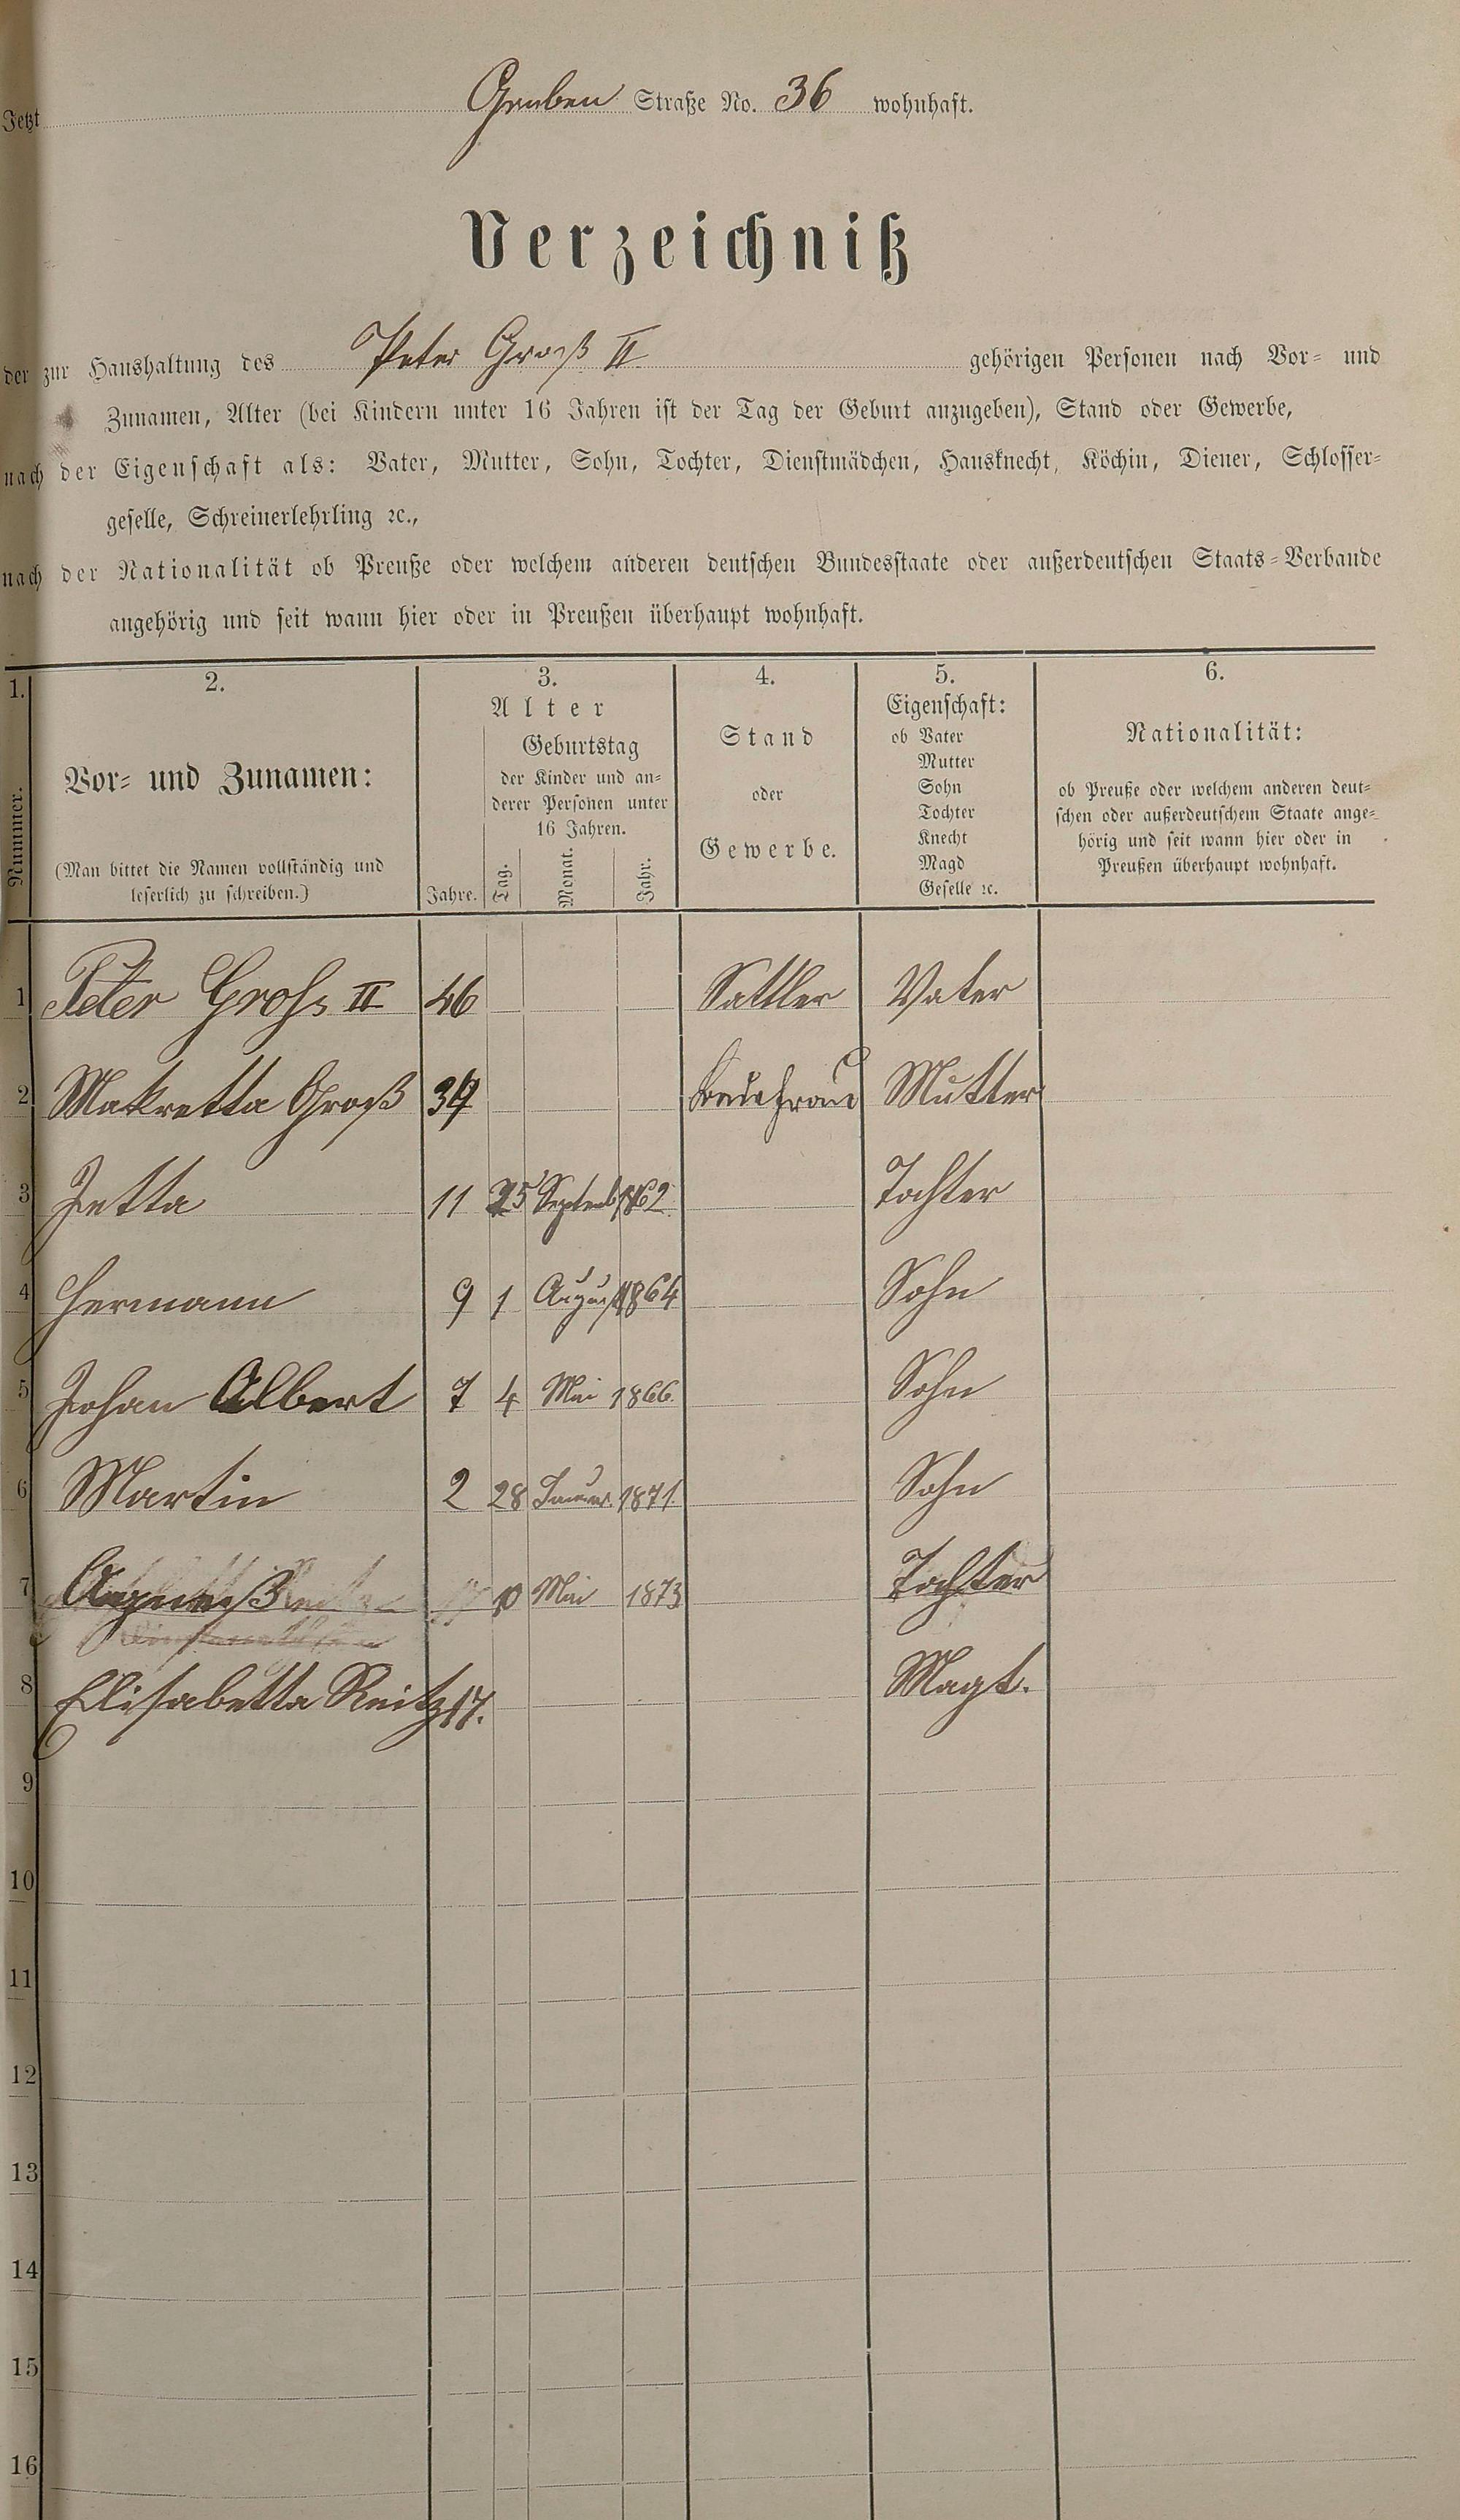 Jetzt Gruben Straße No. 36 wohnhaft.
Verzeichniß
der zur Haushaltung des Peter Groß II gehörigen Personen nach Vor- und
Zunamen, Alter (bei Kindern unter 16 Jahren ist der Tag der Geburt anzugeben), Stand oder Gewerbe,
nach der Eigenschaft als: Vater, Mutter, Sohn, Tochter, Dienstmädchen, Hausknecht, Köchin, Diener, Schlosser-
geselle, Schreinerlehrling ꝛc.,
nach der Nationalität ob Preuße oder welchem anderen deutschen Bundesstaate oder außerdeutschen Staats-Verbande
angehörig und seit wann hier oder in Preußen überhaupt wohnhaft.
1.
Nummer.
2.
Vor- und Zunamen:
(Man bittet die Namen vollständig und
leserlich zu schreiben.)
3.
Alter
Geburtstag
der Kinder und an-
derer Personen unter
16 Jahren.
Jahre. Tag. Monat. Jahr.
4.
Stand
oder
Gewerbe.
5.
Eigenschaft:
ob Vater
Mutter
Sohn
Tochter
Knecht
Magd
Geselle ꝛc.
6.
Nationalität:
ob Preuße oder welchem anderen deut-
schen oder außerdeutschem Staate ange-
hörig und seit wann hier oder in
Preußen überhaupt wohnhaft.
1 Peter Grohs II 46 Sattler Vater
2 Makretta Groß Mutter
3 Jetta 11 25 Septemb 1862 Tochter
4 Hermann 9 1 August 1864 Sohn
5 Johan Albert 7 4 Mai 1866. Sohn
6 Martin 2 28 Januar. 1871. Sohn
7 Mai 1873 Tochter
8 Elisabetta Reitz 17. Magt.
9
10
11
12
13
14
15
16